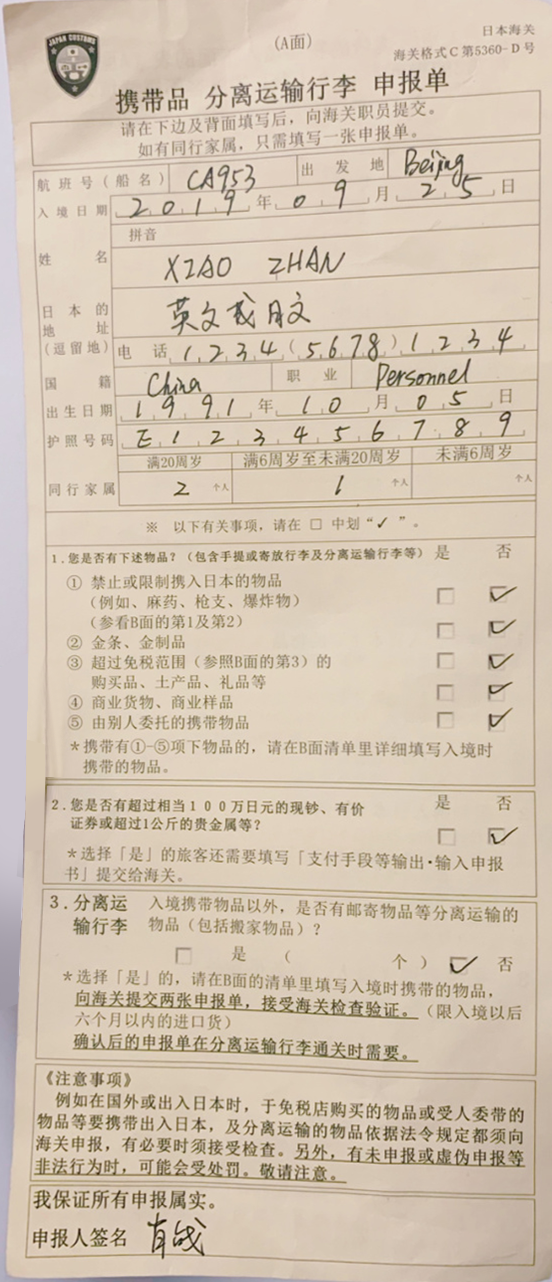 JAPAN CUSTOMS
(A面)
日本海关
海关格式C第5360-D号
携带品 分离运输行李 申报单
请在下边及背面填写后，向海关职员提交。
如有同行家属，只需填写一张申报单。
航班号(船名) CA953 出发地 Beijing
入境日期 2019年09月25日
拼音
姓名 XIAO ZHAN
日本的
地址
(逗留地)
英文或日文
电话 1234(5678)1234
国籍 China 职业 Personnel
出生日期 1991年10月05日
护照号码 E123456789
满20周岁 满6周岁至未满20周岁 未满6周岁
同行家属 2个人 1个人 个人
※ 以下有关事项，请在 □ 中划“✓”。
1.您是否有下述物品？(包含手提或寄放行李及分离运输行李等) 是 否
① 禁止或限制携入日本的物品
(例如、麻药、枪支、爆炸物) □ ☑
(参看B面的第1及第2)
② 金条、金制品 □ ☑
③ 超过免税范围(参照B面的第3)的 □ ☑
购买品、土产品、礼品等
④ 商业货物、商业样品 □ ☑
⑤ 由别人委托的携带物品 □ ☑
*携带有①-⑤项下物品的，请在B面清单里详细填写入境时
携带的物品。
2.您是否有超过相当100万日元的现钞、有价 是 否
证券或超过1公斤的贵金属等？ □ ☑
*选择「是」的旅客还需要填写「支付手段等输出·输入申报
书」提交给海关。
3.分离运 入境携带物品以外，是否有邮寄物品等分离运输的
输行李 物品(包括搬家物品)？
□ 是 ( 个) ☑ 否
*选择「是」的，请在B面的清单里填写入境时携带的物品，
向海关提交两张申报单，接受海关检查验证。(限入境以后
六个月以内的进口货)
确认后的申报单在分离运输行李通关时需要。
《注意事项》
例如在国外或出入日本时，于免税店购买的物品或受人委带的
物品等要携带出入日本，及分离运输的物品依据法令规定都须向
海关申报，有必要时须接受检查。另外，有未申报或虚伪申报等
非法行为时，可能会受处罚。敬请注意。
我保证所有申报属实。
申报人签名 肖战